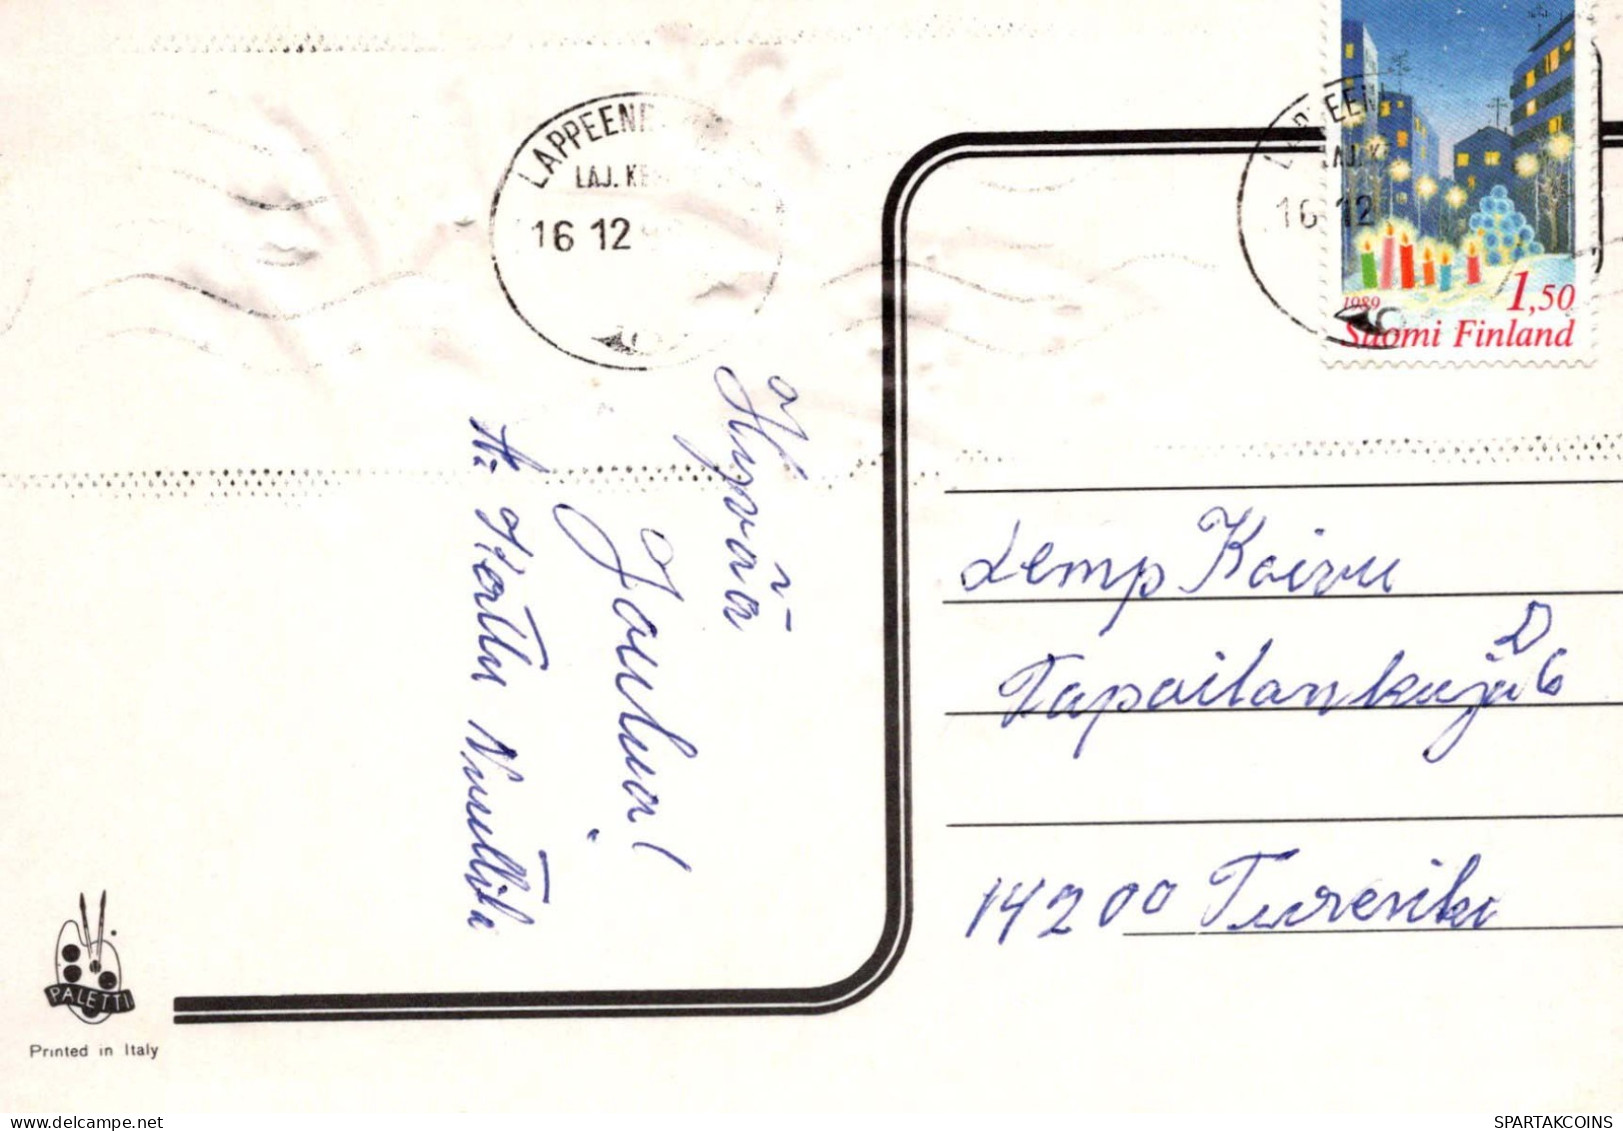 LAPPEEN
LAJ. KE
16 12
LAPPEEN
LAJ. KE
16 12
1989
1,50
Suomi Finland
Hyvää
Joulua!
T: Kerttu Nuuttila
Lemp Koivu
Tapailankuja D 6
14200 Turenki
PALETTI
Printed in Italy
SPARTAKCOINS.COM